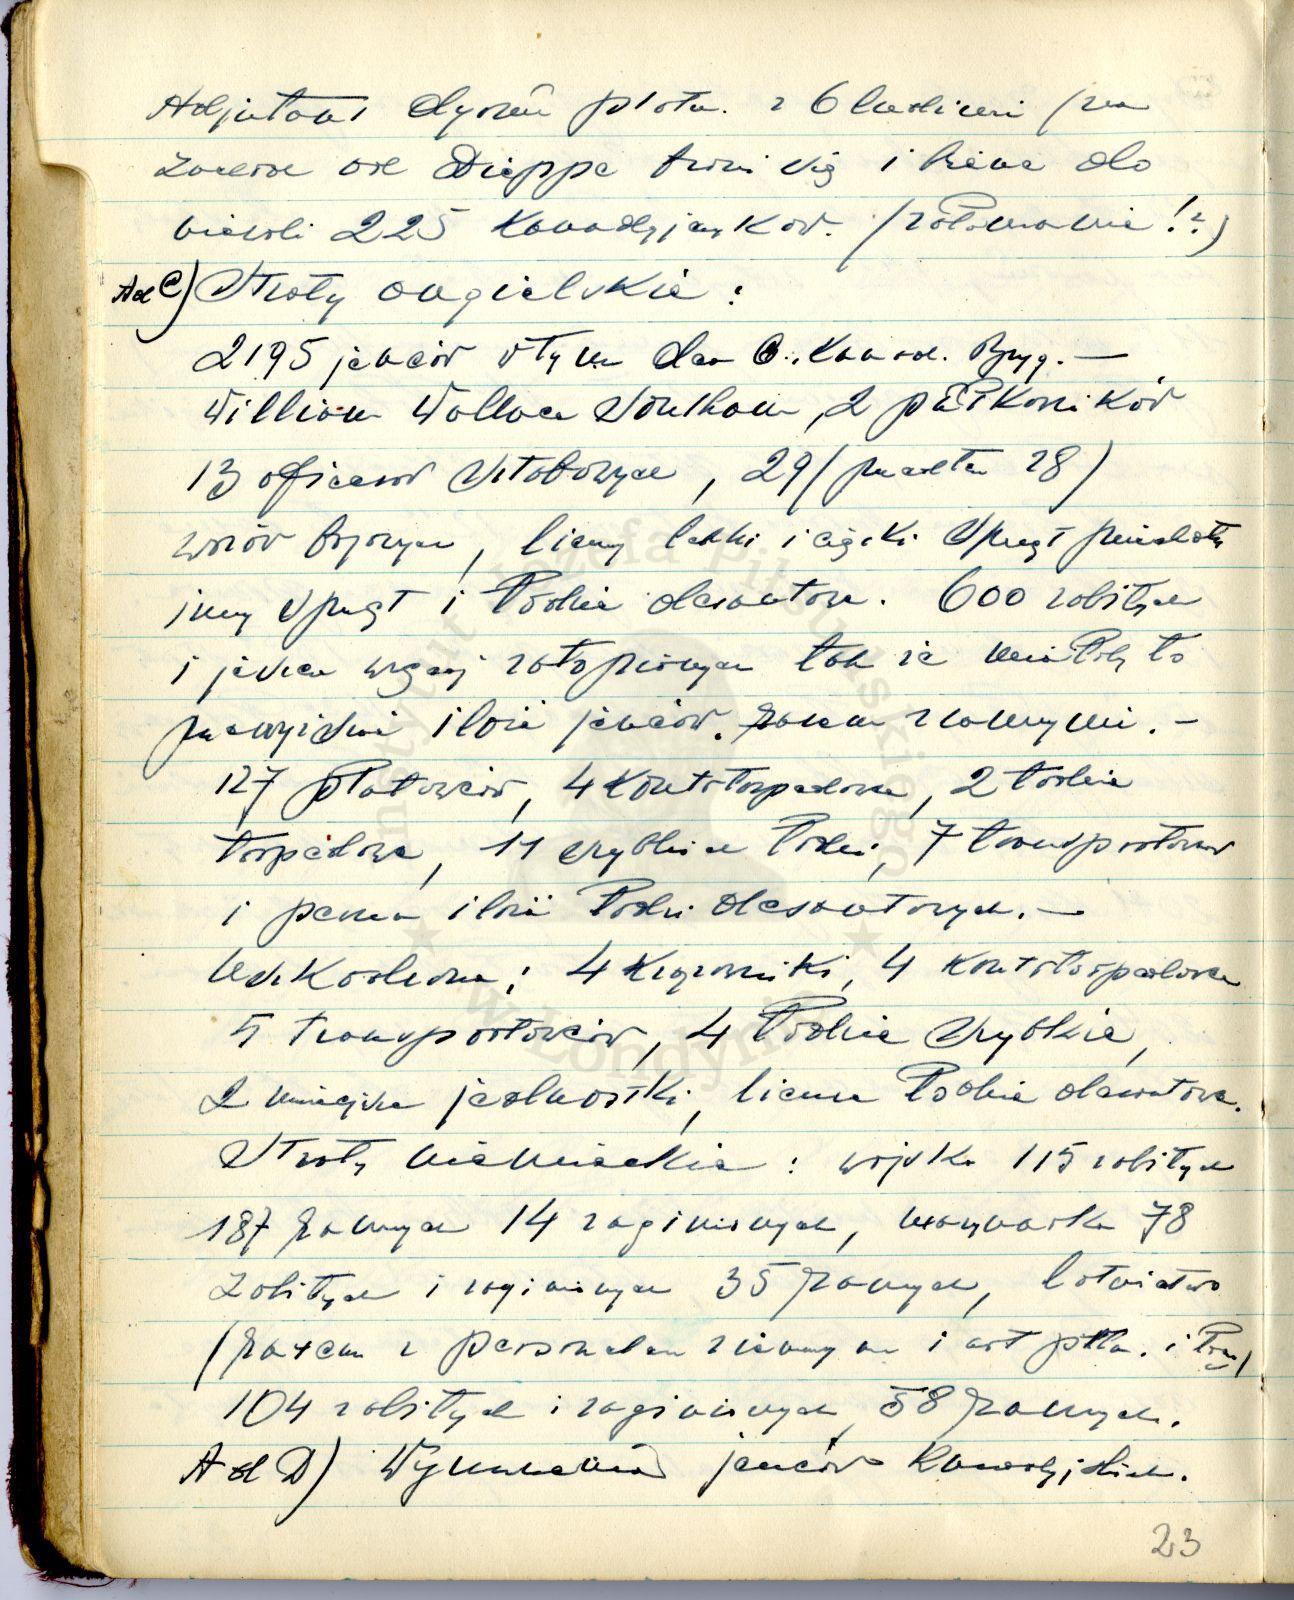 Adjutant dyonu plotn. z 6 ludźmi (na
zachód od Dieppe broni się i bierze do
niewoli 225 Kanadyjczyków. (załamanie!?)
Ad C) Straty angielskie:
2195 jeńców w tym dca 6. Kanad. Bryg. —
William Wallace Southam, 2 pułkowników
13 oficerów sztabowych, 29 (ponadto 28)
wozów bojowych, liczny lekki i ciężki sprzęt piechoty
inny sprzęt i łodzie desantowe. 600 zabitych
i jeszcze więcej zatopionych tak że miałoby to
przewyższać ilość jeńców razem z rannymi. —
127 płatowców, 4 kontrtorpedowce, 2 łodzie
torpedowe, 11 szybkich łodzi, 7 transportowców
i pewna ilość łodzi desantowych. —
Uszkodzone: 4 krążowniki, 4 kontrtorpedowce
5 transportowców, 4 łodzie szybkie,
2 mniejsze jednostki, liczne łodzie desantowe.
Straty niemieckie: wojsko 115 zabitych
187 rannych 14 zaginionych, marynarka 78
zabitych i zaginionych 35 rannych, lotnictwo
(razem z personelem ziemnym i art. plot. i łącz)
104 zabitych i zaginionych, 58 rannych.
Ad D) jeńców kanadyjskich.
23
Instytut Józefa Piłsudskiego
w Londynie